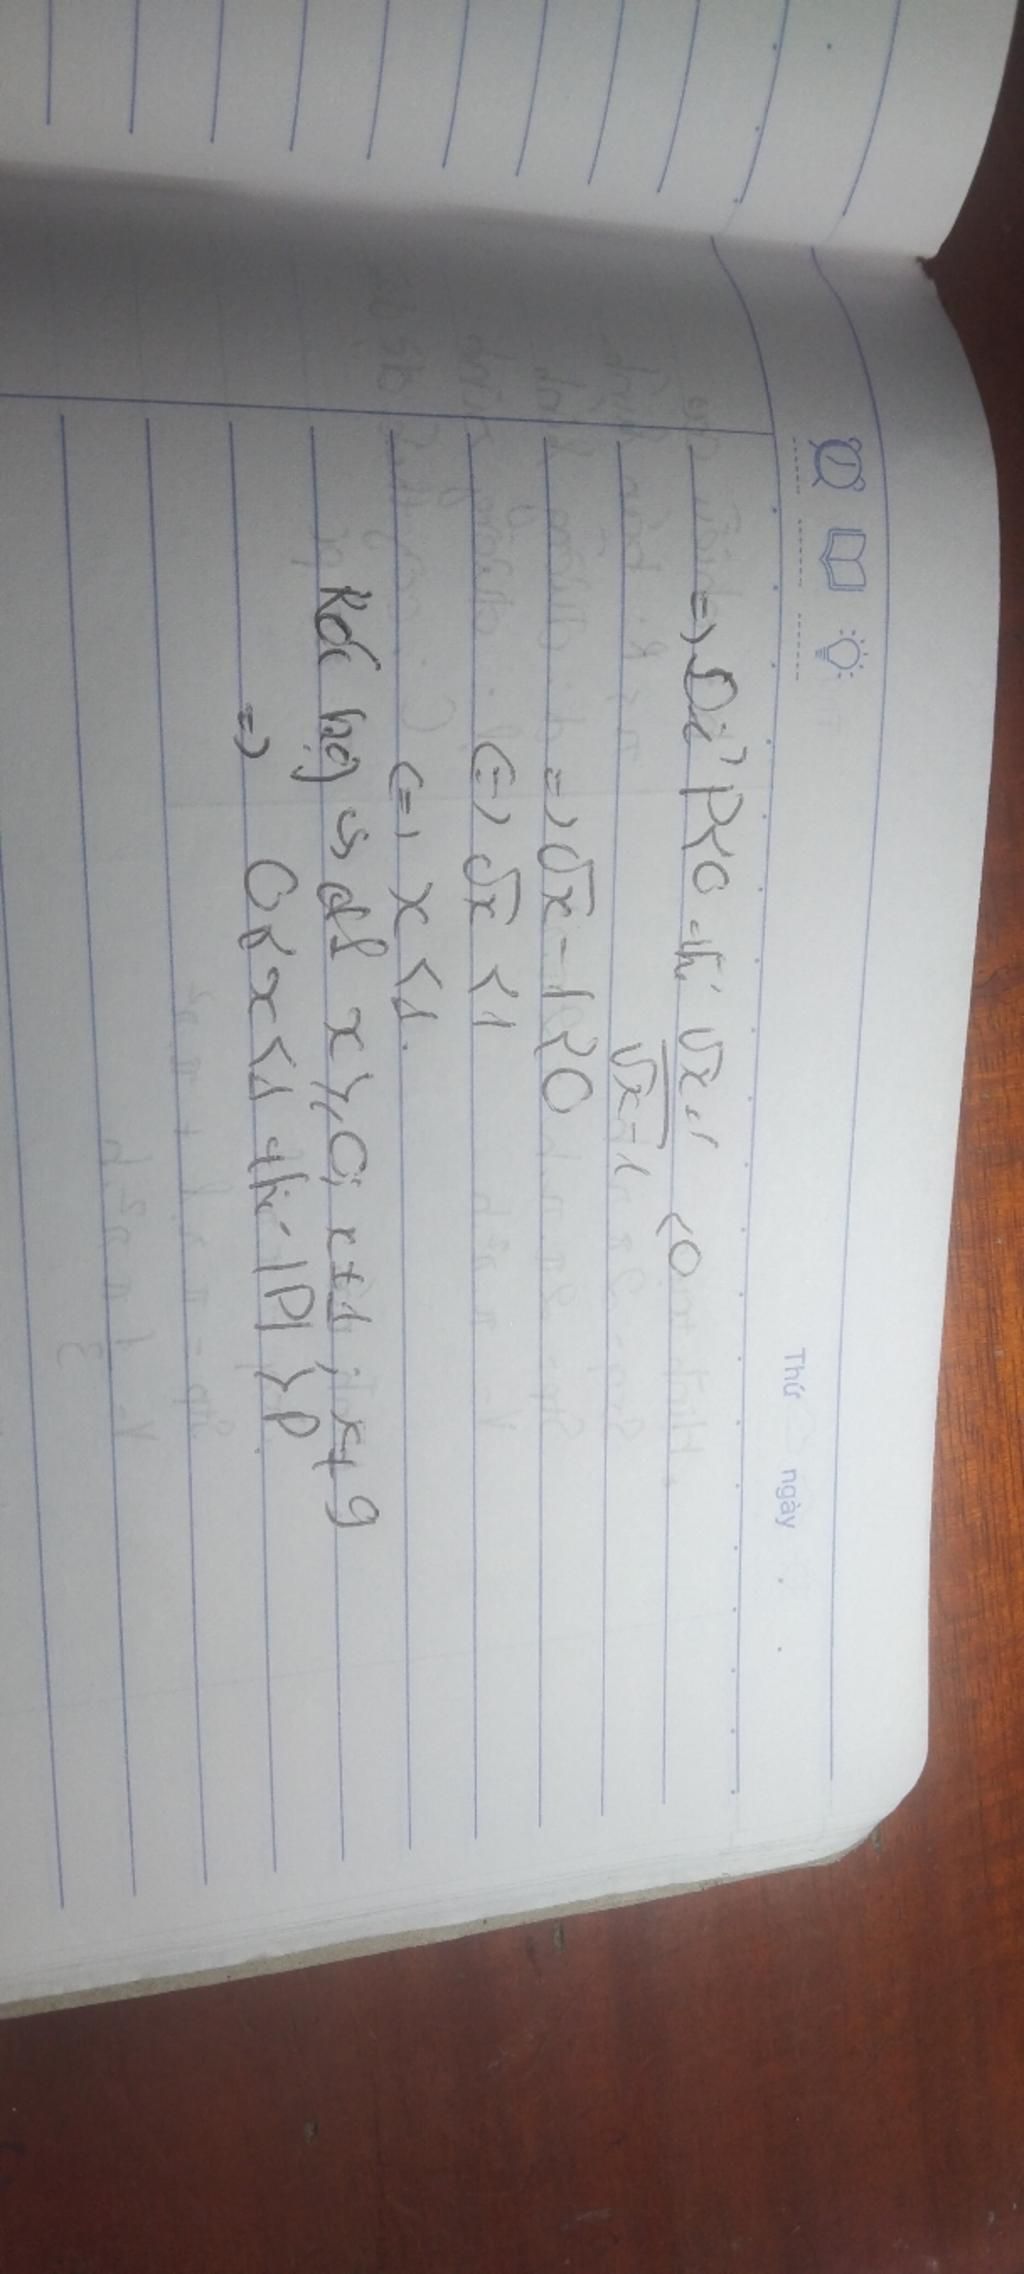 Thứ ngày
=) Để P<0 thì √x+1 <0
√x-1
=) √x-1<0
(=) √x <1
(=) x<1.
Kết hợp vs đk x≥0; x≠1; x≠9
=) 0≤x<1 thì |P|>P